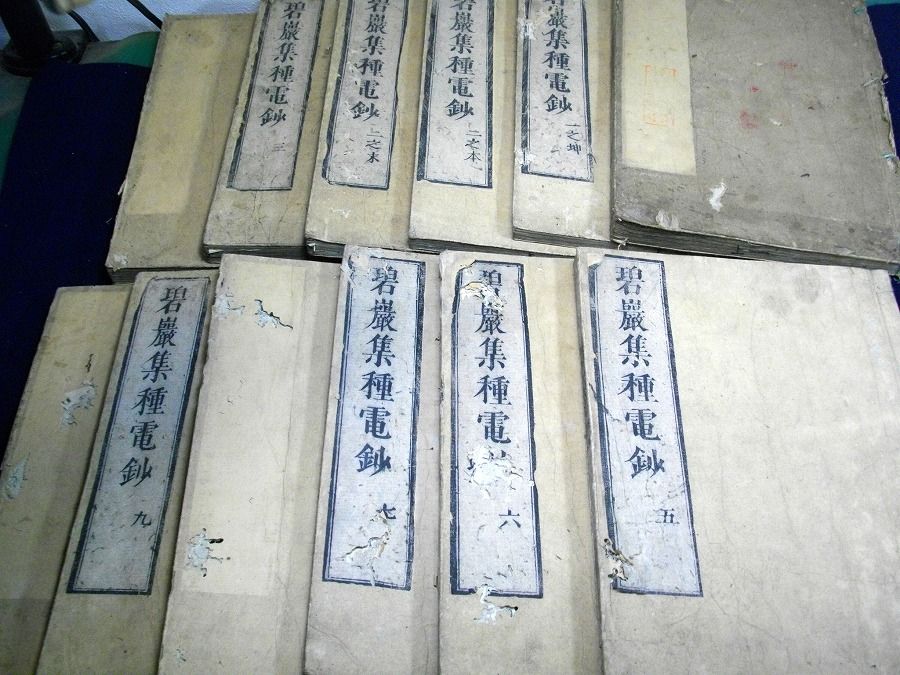 碧巖集種電鈔 一之坤
碧巖集種電鈔 二之本
碧巖集種電鈔 二之末
碧巖集種電鈔 三
碧巖集種電鈔 五
碧巖集種電 六
碧巖集種電鈔 七
碧巖集種電鈔 九